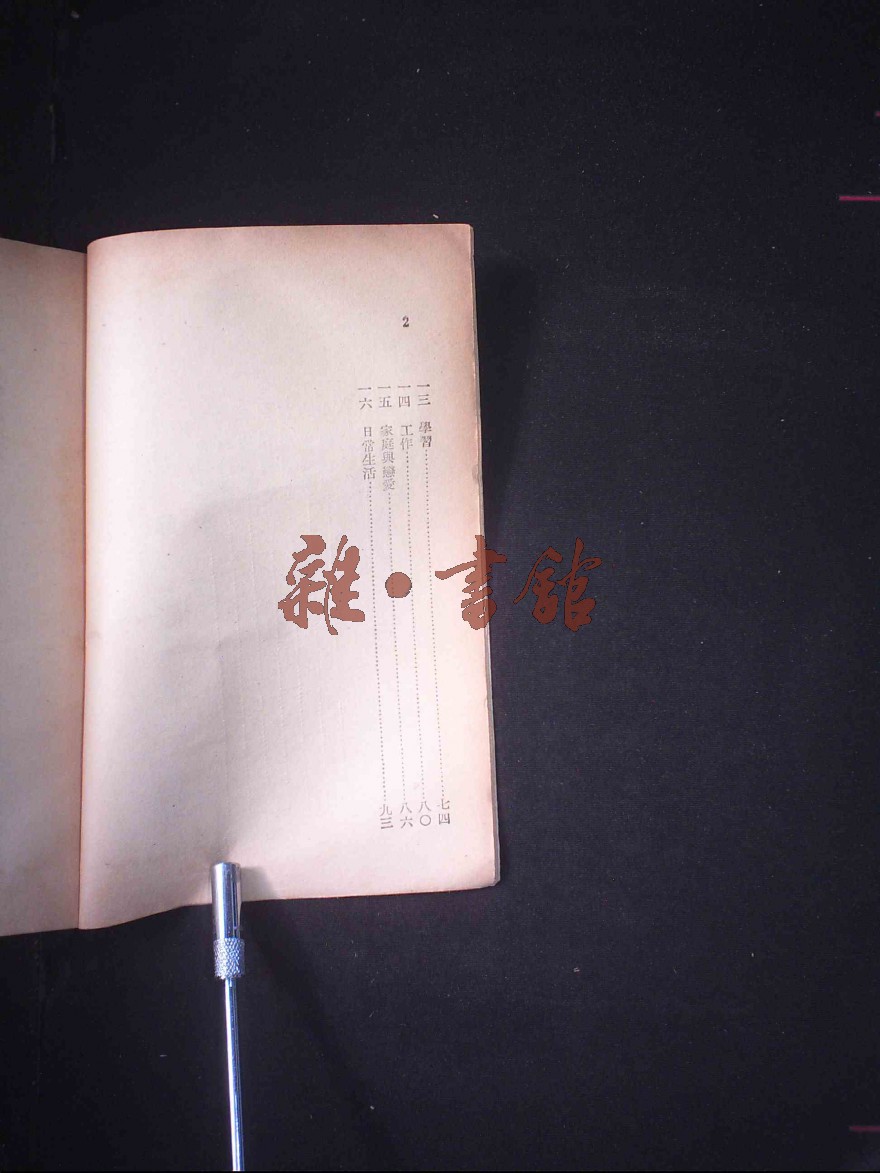 2
一三 學習 七四
一四 工作 八〇
一五 家庭與戀愛 八六
一六 日常生活 九三
雜·書館